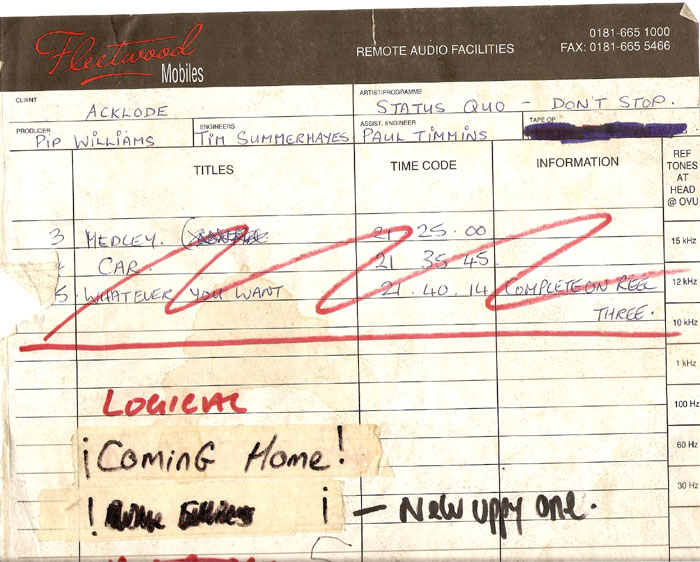 Fleetwood
Mobiles
REMOTE AUDIO FACILITIES
0181-665 1000
FAX: 0181-665 5466
CLIENT
ACKLODE
ARTIST/PROGRAMME
STATUS QUO - DON'T STOP.
PRODUCER
PIP WILLIAMS
ENGINEERS
TIM SUMMERHAYES
ASSIST. ENGINEER
PAUL TIMMINS
TAPE OP
TITLES
TIME CODE
INFORMATION
REF
TONES
AT
HEAD
@ OVU
3 MEDLEY. 21 25.00
CAR. 21 35 45.
15 kHz
5. WHATEVER YOU WANT 21.40.14 COMPLETE ON REEL
12 kHz
THREE.
10 kHz
1 kHz
LOGICAL
100 Hz
¡Coming Home!
60 Hz
30 Hz
! ¡ - New uppy one.